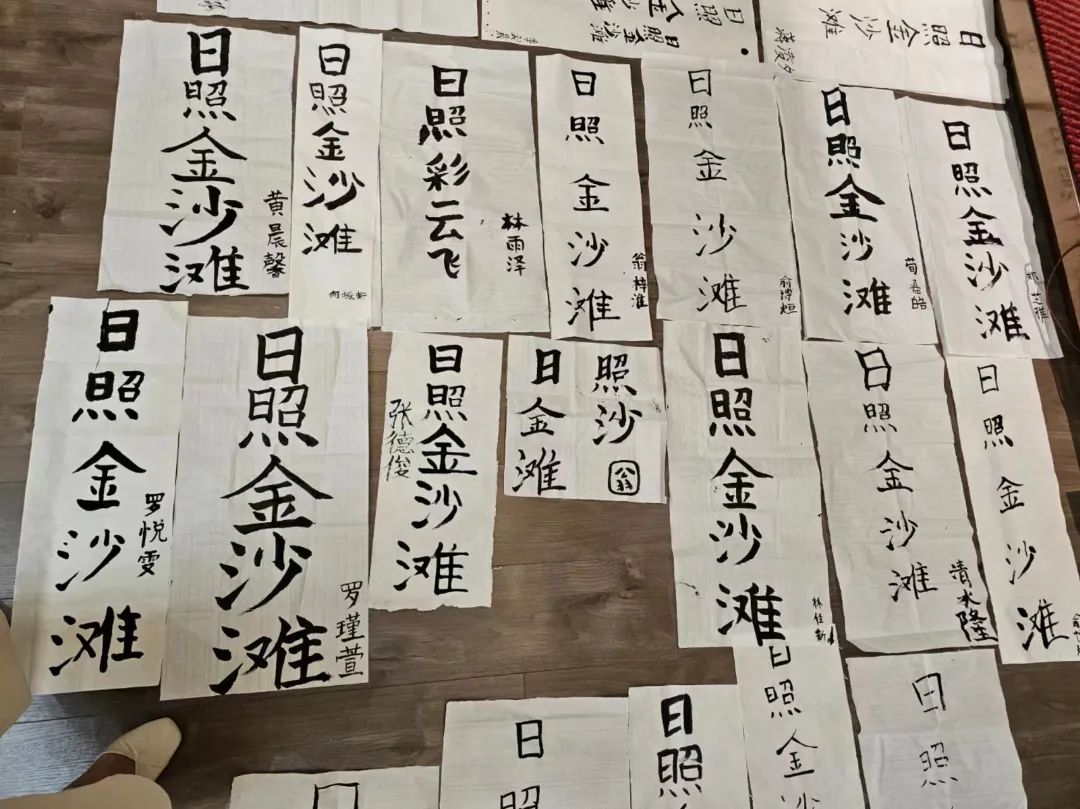 日照
金沙
日照金沙滩
日照金沙滩
日照金沙滩
黄晨馨
日照金沙滩
日照彩云飞
林雨泽
日照金沙滩
翁梓淮
日照金沙滩
俞博烜
日照金沙滩
荀嘉皓
日照金沙滩
日照金沙滩
罗悦雯
日照金沙滩
罗瑾萱
日照金沙滩
张德俊
日照
金沙
滩
翁
日照金沙滩
林佳新
日照金沙滩
清水隆
日照金沙滩
日照
日照
日照金沙
日照